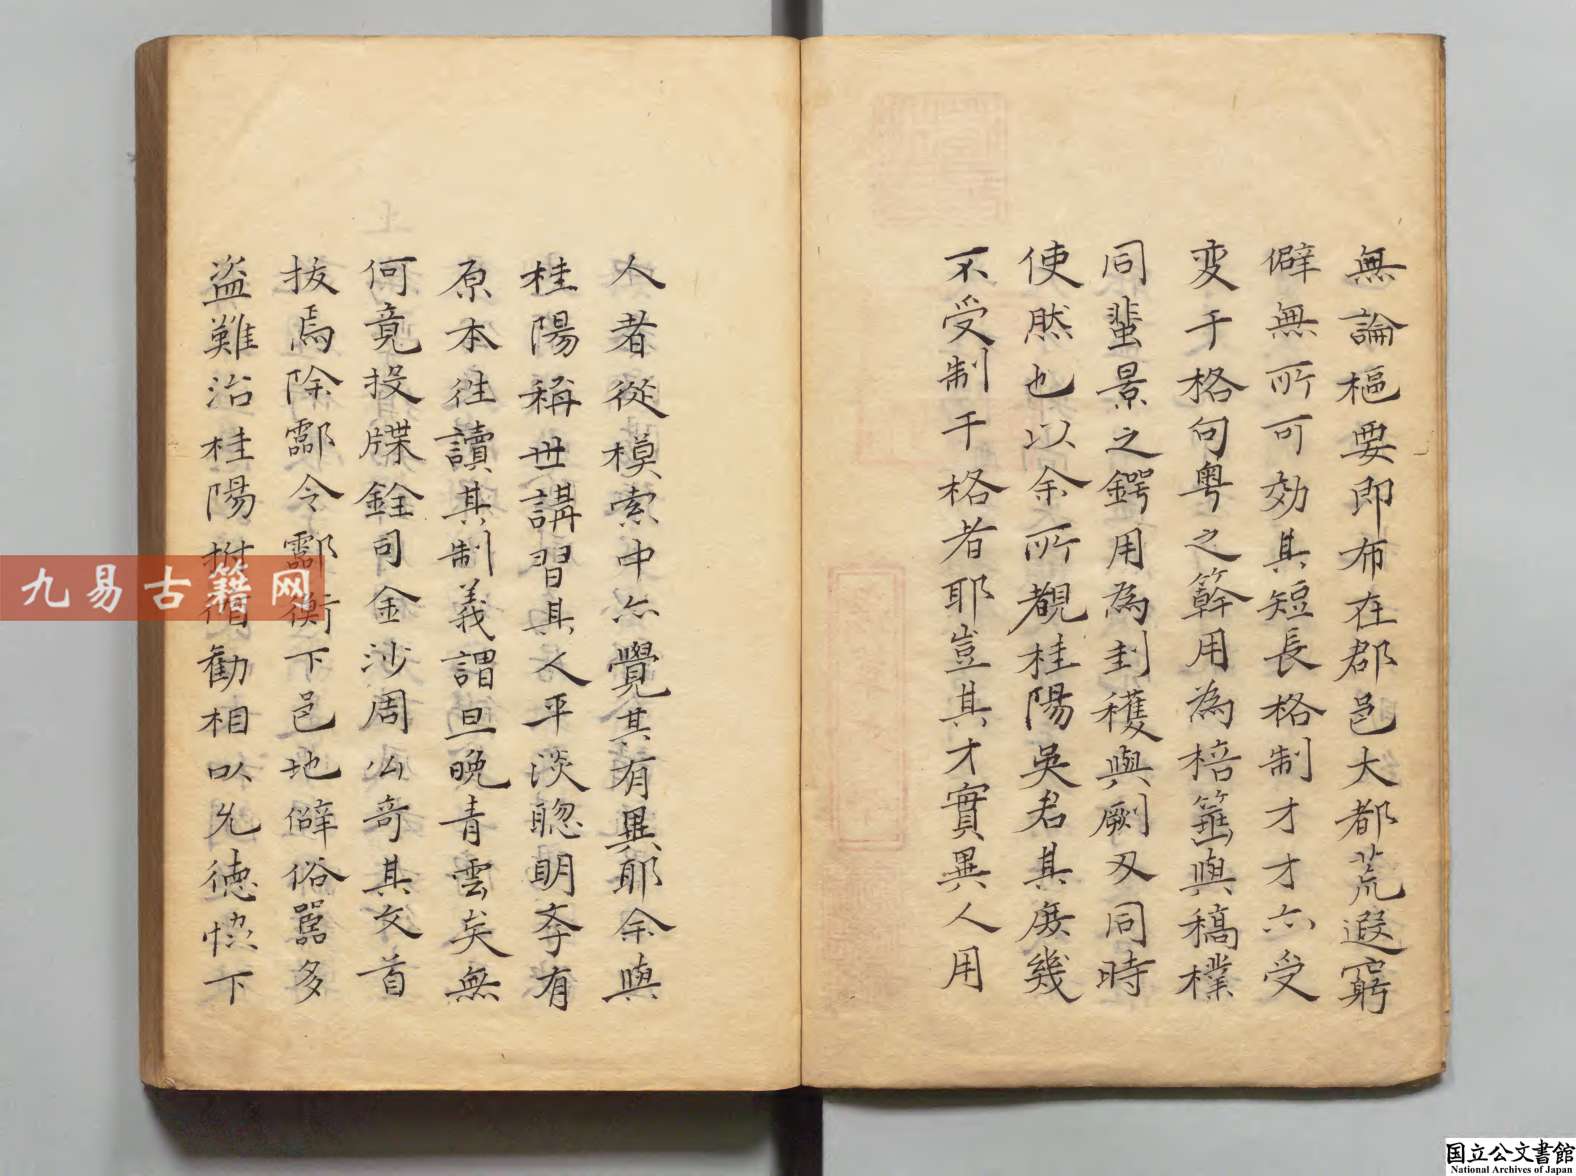 無論樞要即布在郡邑大都荒遐窮
僻無所可効其短長格制才才亦受
变于格句粤之簳用為棓箠與稿樸
同蜚景之鍔用為刲穫與劂刄同時
使然也以余所覩桂陽吳君其庻幾
不受制于格者耶豈其才實異人用
人者從模索中亦覺其有異耶余與
桂陽稱世講習其人平淡聰明孝有
原本徃讀其制義謂旦晚青雲矣無
何竟投牒銓司金沙周公竒其文首
拔焉除酃令酃衡下邑地僻俗嚚多
盜難治桂陽拊循勸相以允德恢下
九易古籍网
国立公文書館
National Archives of Japan